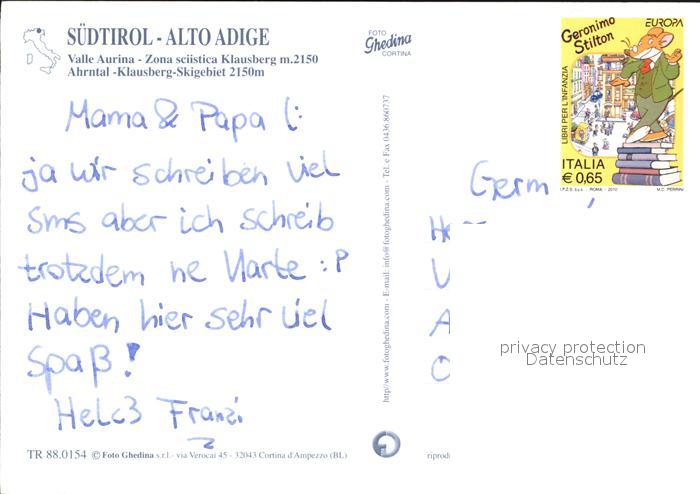 SÜDTIROL - ALTO ADIGE
Valle Aurina - Zona sciistica Klausberg m.2150
Ahrntal -Klausberg-Skigebiet 2150m
D
FOTO
Ghedina
CORTINA
Mama & Papa (:
ja wir schreiben viel
Sms aber ich schreib
trotzdem ne Karte :P
Haben hier sehr viel
Spaß!
Franzi
TR 88.0154 © Foto Ghedina s.r.l.- via Verocai 45 - 32043 Cortina d'Ampezzo (BL)
http//www.fotoghedina.com - E-mail: info@fotoghedina.com - Tel. e Fax 0436.860737
riprod
Geronimo
Stilton
EUROPA
LIBRI PER L'INFANZIA
ITALIA
€ 0,65
I.P.Z.S. S.p.A. - ROMA - 2010
M.C. PERRINI
Germ
V
A
privacy protection
Datenschutz